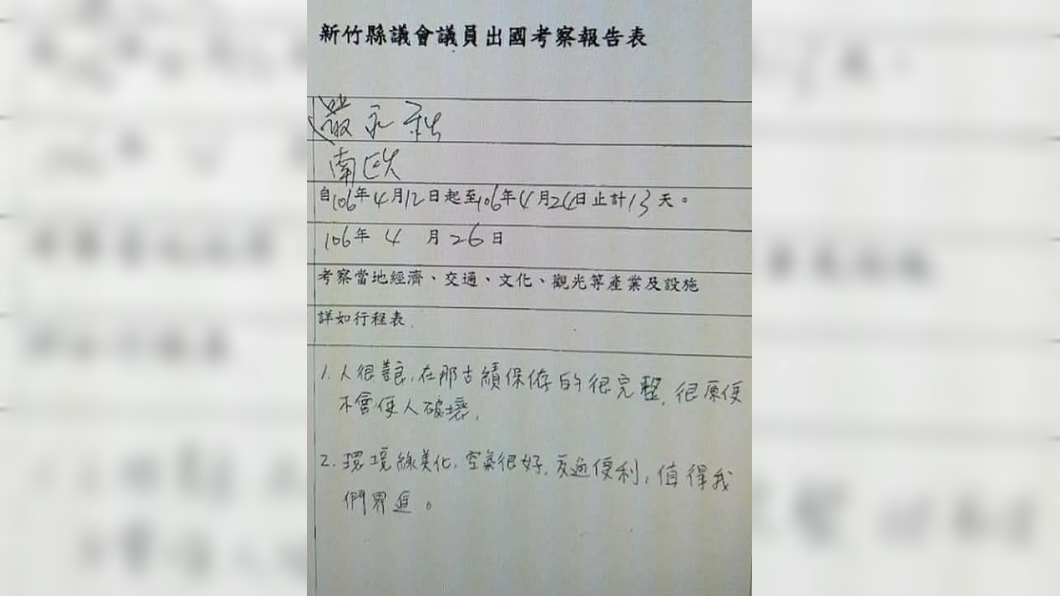 新竹縣議會議員出國考察報告表
嚴永秋
南欧
自106年4月12日起至106年4月24日止計13天。
106年 4 月26日
考察當地經濟、交通、文化、觀光等產業及設施
詳如行程表
1. 人很善良,在那古績保存的很完整,很原使
不會使人破壞,
2. 環境綠美化,空氣很好,交通便利,值得我
們進。